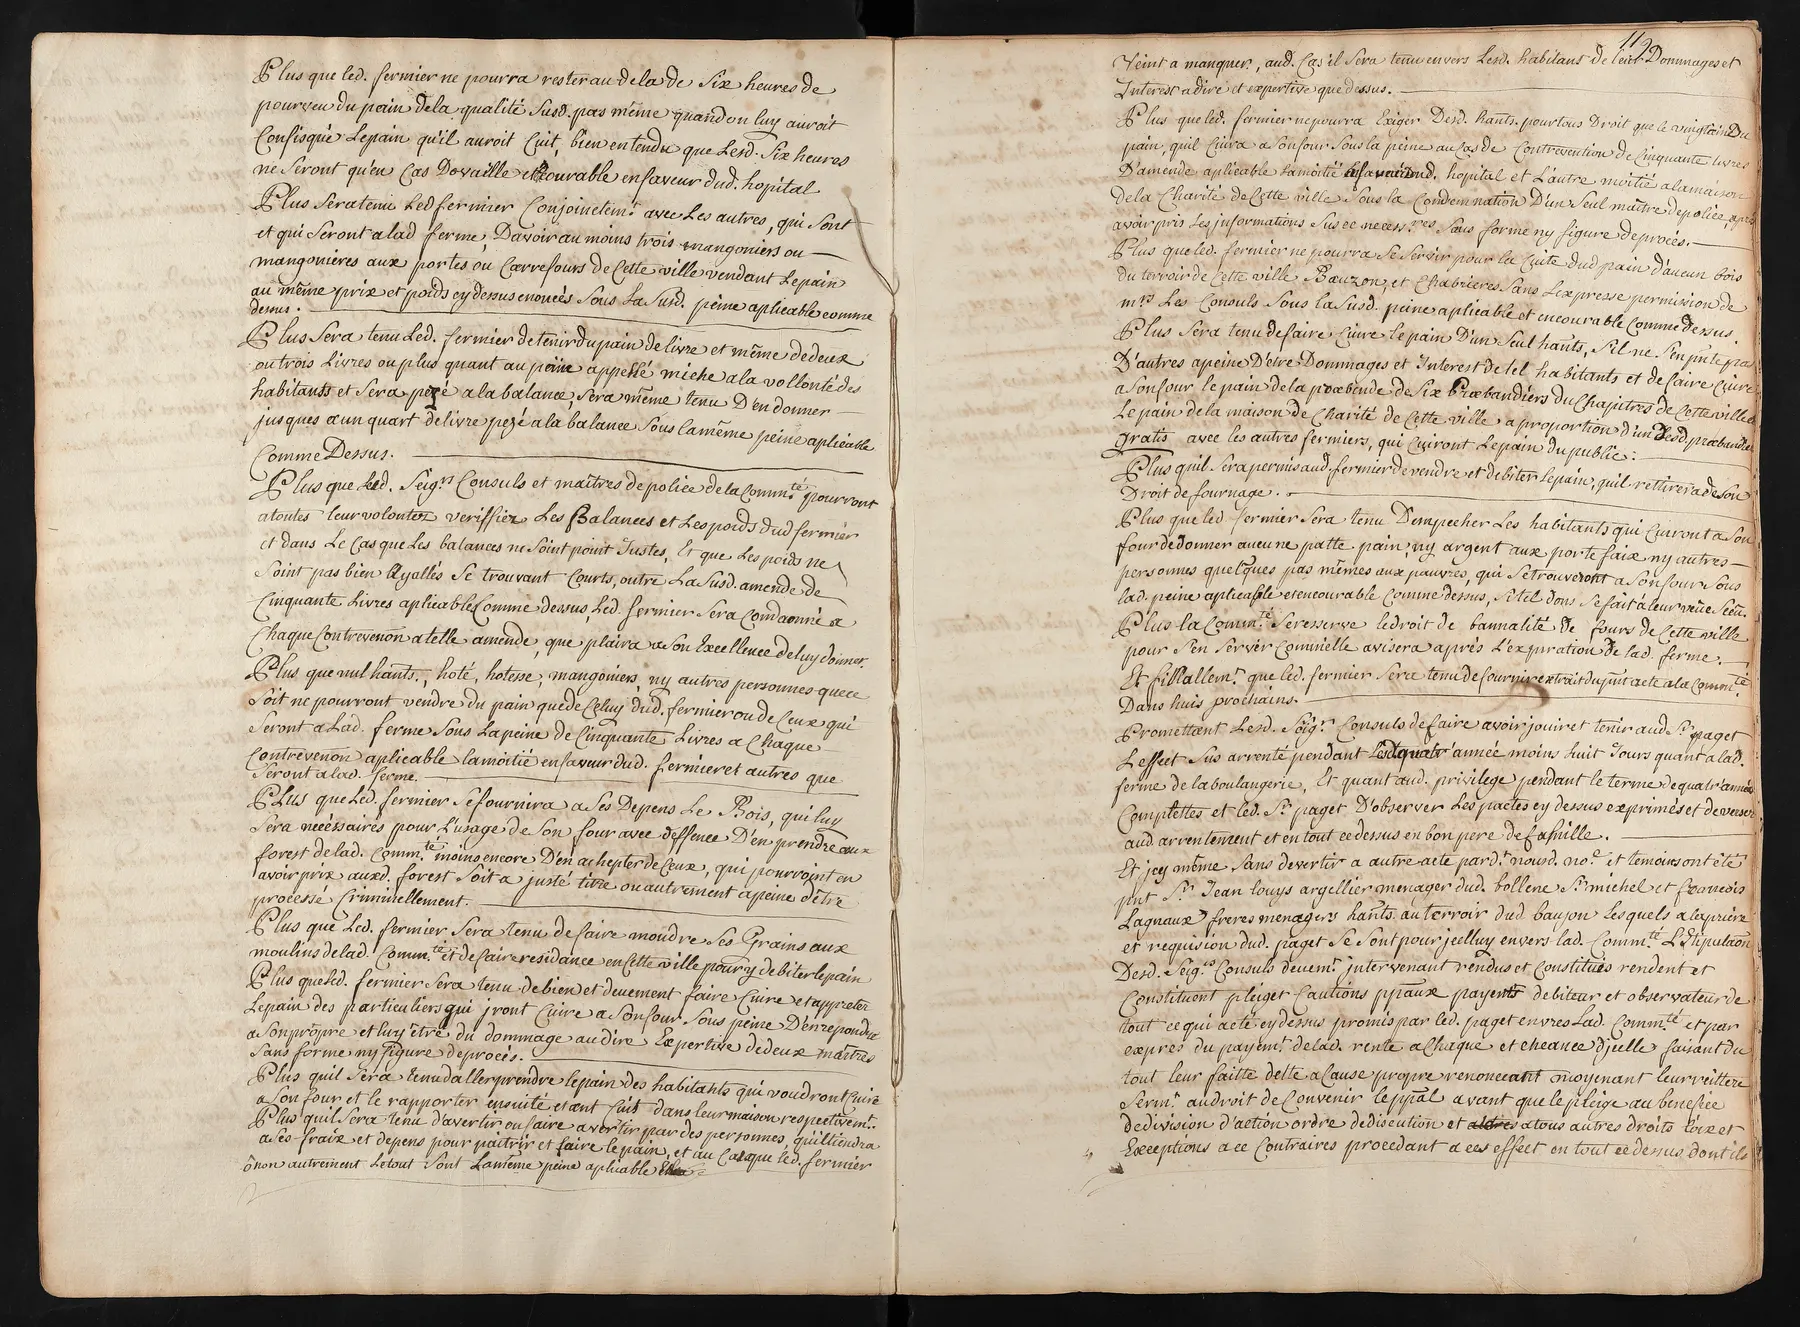 Plus que led. fermier ne pourra rester au dela de six heures de
pourveu du pain dela qualité susd. pas même quand on luy auroit
Confisqué Lepain qu'il auroit Cuit, bien entendu que Lesd. Six heures
ne Seront qu'en Cas Dovaille encourable en faveur dud. hopital
Plus Sera tenu Led fermier Conjoinctem.t avec Les autres, qui Sont
et qui Seront a lad ferme, D'avoir au moins trois mangoniers ou
mangonières aux portes ou Carrefours de Cette ville vendant Lepain
au même prix et poids cy dessus enoncés Sous La Susd. peine aplicable comme
dessus.
Plus Sera tenu Led. fermier de tenir du pain de livre et même de deux
ou trois Livres ou plus quant au pain appellé miche a la vollonté des
habitants et Sera pezé a la balance, Sera même tenu D'en donner
jusques a un quart de livre pezé a la balance Sous la même peine aplicable
Comme Dessus.
Plus que Led. Seig.rs Consuls et maîtres de police de la Comm.té pourront
a toutes leur volontez veriffier Les Balances et Les poids dud fermier
et dans Le Cas que Les balances ne Soint point Justes, Et que Les poids ne
Soint pas bien Egallés Se trouvant Courts, outre La Susd. amende de
Cinquante Livres aplicable Comme dessus, Led. fermier Sera Comdamné a
Chaque Contrevenon a telle amende, que plaira a Son Excellence de luy donner.
Plus que nul hants., hoté, hotesse, mangoniers, ny autres personnes que ce
Soit ne pourront vendre du pain que de Celuy dud. fermier ou de Ceux qui
Seront a Lad. ferme Sous La peine de Cinquante Livres a Chaque
Contrevenon aplicable la moitié en faveur dud. fermier et autres que
Seront a lad. ferme.
Plus que Led. fermier Se fournira a Ses Depens Le Bois, qui luy
Sera necéssaires pour L'usage de Son four avec deffence D'en prendre aux
forest de lad. Comm.té moins encore D'en achepter de Ceux, qui pourroint en
avoir prix auxd. forest Soit a justé titre ou autrement a peine d'être
procéssé Criminellement.
Plus que Led. fermier Sera tenu de faire moudre Ses Grains aux
moulins de lad. Comm.té et de faire residance en Cette ville pour y debiter le pain
Plus que Led. fermier Sera tenu de bien et deuement faire Cuire et appreter
Lepain des particuliers qui jront Cuire a Son four Sous peine D'en repondre
a Son propre et luy être du dommage au dire Expertise de deux maîtres
Sans forme ny figure de procés.
Plus quil Sera tenu d'aller prendre le pain des habitants qui voudront Cuire
a Son four et le rapporter ensuité etant Cuit dans leur maison respectivem.t
Plus quil Sera tenu d'avertir ou faire avertir par des personnes, quil tiendra
a Ses fraix et depens pour paîtrir et faire le pain, et au Cas que led. fermier
ô non autrement Letout Sont La même peine aplicable
119
Veint a manquer, aud. Cas il Sera tenu envers Lesd. habitans de leur Dommages et
Interest a dire et expertise que dessus.
Plus que led. fermier ne pourra Exiger Desd. hants. pour tous Droit que le vingtain Du
pain, quil Cuira a Son four Sous la peine au Cas de Contrevention de Cinquante livres
D'amende aplicable La moitié en faveur dud. hopital et L'autre moitié a la maison
de la Charité de Cette ville Sous la Condemnation D'un Seul maître de police, aprés
avoir pris Les informations Sus ce necess.res Sans forme ny figure de procés.
Plus que led. fermier ne pourra Se Servir pour la Cuite dud pain d'aucun bois
du terroir de Cette ville Bauzon, et Chabrieres Sans L'expresse permission de
m.rs Les Consuls Sous la Susd. peine aplicable et encourable Comme Dessus.
Plus Sera tenu de faire Cuire le pain D'un Seul hants, Sil ne S'en pnte pa
D'autres a peine D'etre Dommages et Interest de tel habitants et de faire Cuire
a Son four le pain de la præbende de Six Præbandiers du Chapitres de Cette ville
Le pain de la maison de Charité de Cette ville a proportion d'un Desd. præbandie
gratis avec les autres fermiers, qui Cuiront Lepain du public.
Plus quil Sera permis aud. fermier de vendre et debiter Lepain, quil rettirera de Son
Droit de fournage.
Plus que led fermier Sera tenu D'empecher Les habitants qui Cuiront a Son
four de donner aucune patte, pain, ny argent aux porte faix ny autres
personnes quelques pas mêmes aux pauvres, qui Se trouveront a Son four Sous
lad. peine aplicable et encourable Comme dessus, Si tel dons Se fait a leur veüe Sceu.
Plus la Comm.té Se reserve le droit de bannalité de fours de Cette ville
pour S'en Server Comme elle avisera aprés L'expiration de lad. ferme.
Et finallem.t que led. fermier Sera tenu de fournir extrait du pnt acte a la Comm.té
Dans huis prochains.
Promettent Lesd. Seig.rs Consuls de faire avoir jouir et tenir aud S.r paget
L'effect Sus arrenté pendant année moins huit Jours quant a lad.
ferme de la boulangerie, Et quant aud. privilege pendant le terme de quatr'année
Complettes et led. S.r paget D'observer Les pactes cy dessus exprimés et de verser
aud arrentement et en tout ce dessus en bon pere de famille.
Et jcy même Sans devertir a autre acte pard.t nousd. no.e et temoins ont été
pnt S.r Jean louys argellier menager dud. bollene S.r michel et françois
Lagnaux freres menagers hants. au terroir dud baujon Lesquels a la prière
et requision dud. paget Se Sont pour jcelluy envers lad. Comm.té L'estipulaon
Desd. Seig.rs Consuls deuem.t jntervenant rendus et Constitués rendent et
Constituont pléiget Cautions ppaux payents debiteur et observateur de
tout ce qui acte cy dessus promis par led. paget envres Lad. Comm.té et par
exprés du payem.t de lad. rente a Chaque et eheance d'jcelle faisant du
tout leur faitte dette a Cause propre renoncant moyenant leur reittere
Serm.t au droit de Convenir le ppal avant que le pleige au benefice
de division d'action ordre de discution et a tous autres droits Loix et
Exceptions a ce Contraires procedant a ces effect en tout ce dessus dont ils